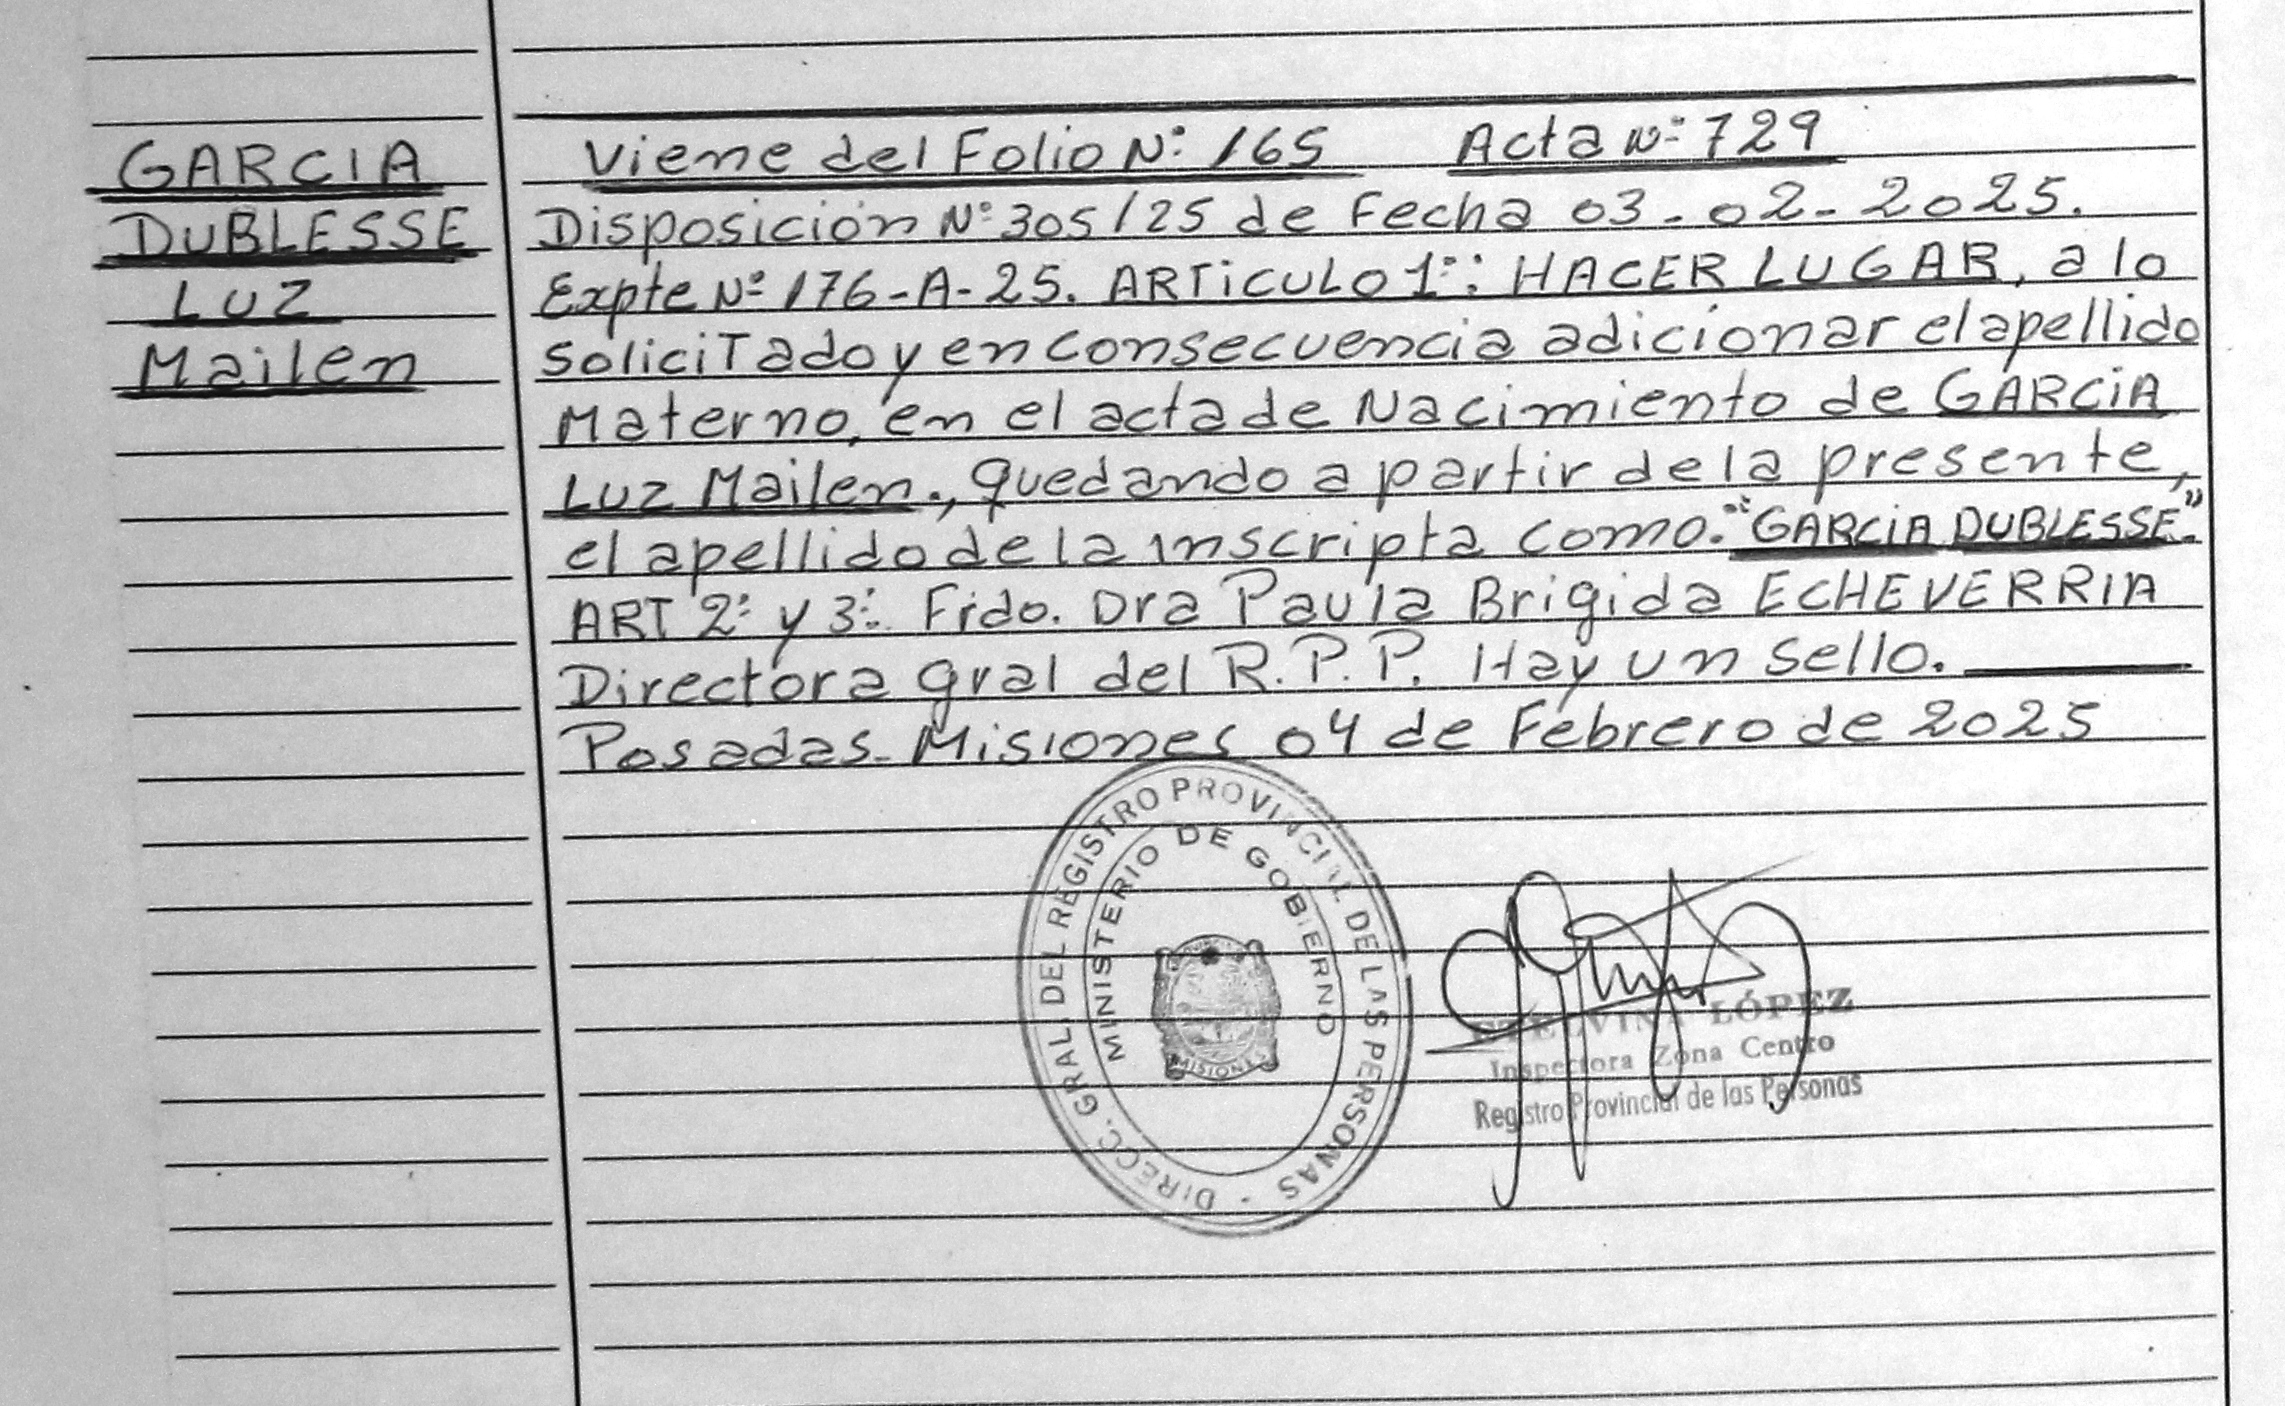 GARCIA
DUBLESSE
LUZ
Mailen
Viene del Folio Nº: 165 Acta Nº: 729
Disposición Nº: 305/25 de Fecha 03-02-2025.
Expte Nº 176-A-25. ARTiCULO 1°: HACER LUGAR, a lo
soliciTado y en consecuencia adicionar el apellido
Materno, en el acta de Nacimiento de GARCiA
LUZ Mailen., quedando a partir de la presente,
el apellido de la inscripta como. "GARCiA DUBLESSE".
ART 2° y 3°. Fido. Dra Paula Brigida ECHEVERRIA
Directora gral del R.P.P. Hay un sello.
Posadas-Misiones 04 de Febrero de 2025
DIRECC. GRAL. DEL REGISTRO PROVINCIAL DE LAS PERSONAS -
MINISTERIO DE GOBIERNO
MISIONES
ETELVINA LÓPEZ
Inspectora Zona Centro
Registro Provincial de las Personas